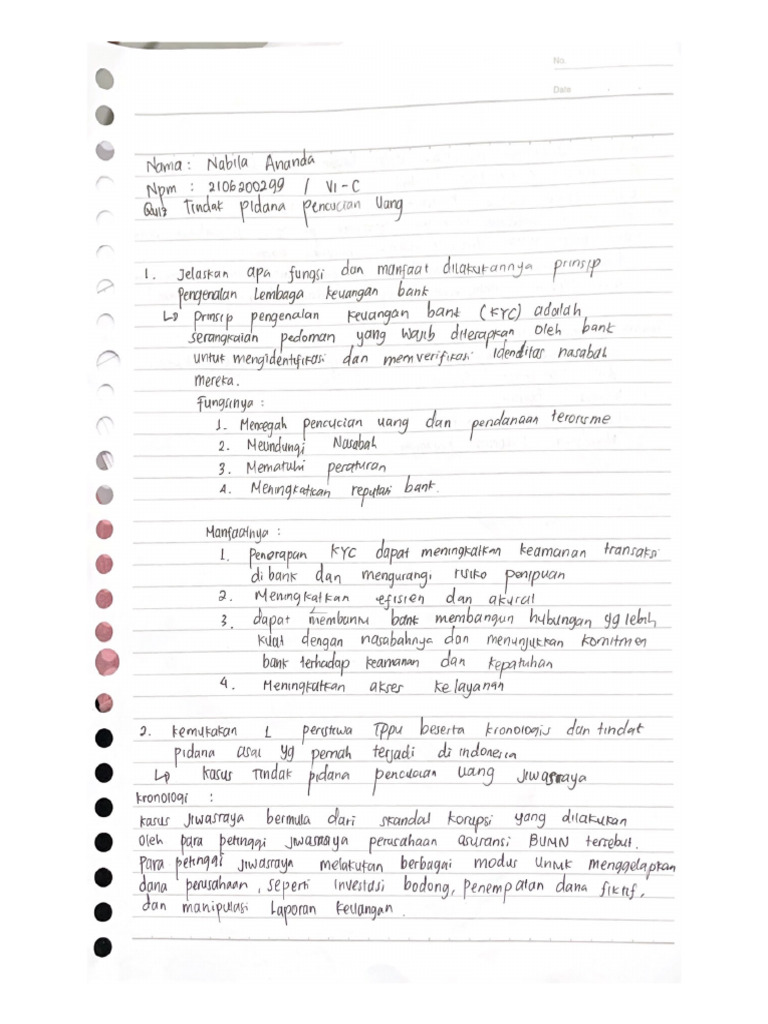 No.
Date
Nama : Nabila Ananda
Npm : 2106200299 / VI - C
Quiz Tindak pidana pencucian Uang
1. Jelaskan apa fungsi dan manfaat dilakukannya prinsip
pengenalan Lembaga keuangan bank
↳ prinsip pengenalan keuangan bank (KYC) adalah
serangkaian pedoman yang wajib diterapkan oleh bank
untuk mengidentifikasi dan memverifikasi identitas nasabah
mereka.
Fungsinya :
1. Mencegah pencucian uang dan pendanaan terorisme
2. Meundungi Nasabah
3. Mematuhi peraturan
4. Meningkatkan reputasi bank.
Manfaatnya :
1. Penerapan KYC dapat meningkatkan keamanan transaksi
di bank dan mengurangi risiko penipuan
2. Meningkatkan efisien dan akurat
3. dapat membantu bank membangun hubungan yg lebih
kuat dengan nasabahnya dan menunjukkan komitmen
bank terhadap keamanan dan kepatuhan
4. Meningkatkan akses kelayanan
2. kemukakan 1 peristiwa TPPU beserta kronologis dan tindak
pidana asal yg pernah terjadi di indonesia
↳ kasus Tindak pidana pencucian uang jiwasraya
kronologi :
kasus jiwasraya bermula dari skandal korupsi yang dilakukan
oleh para petinggi jiwasraya perusahaan asuransi BUMN tersebut.
Para petinggi jiwasraya melakukan berbagai modus untuk menggelapkan
dana perusahaan, seperti investasi bodong, penempatan dana fiktif,
dan manipulasi Laporan keuangan.